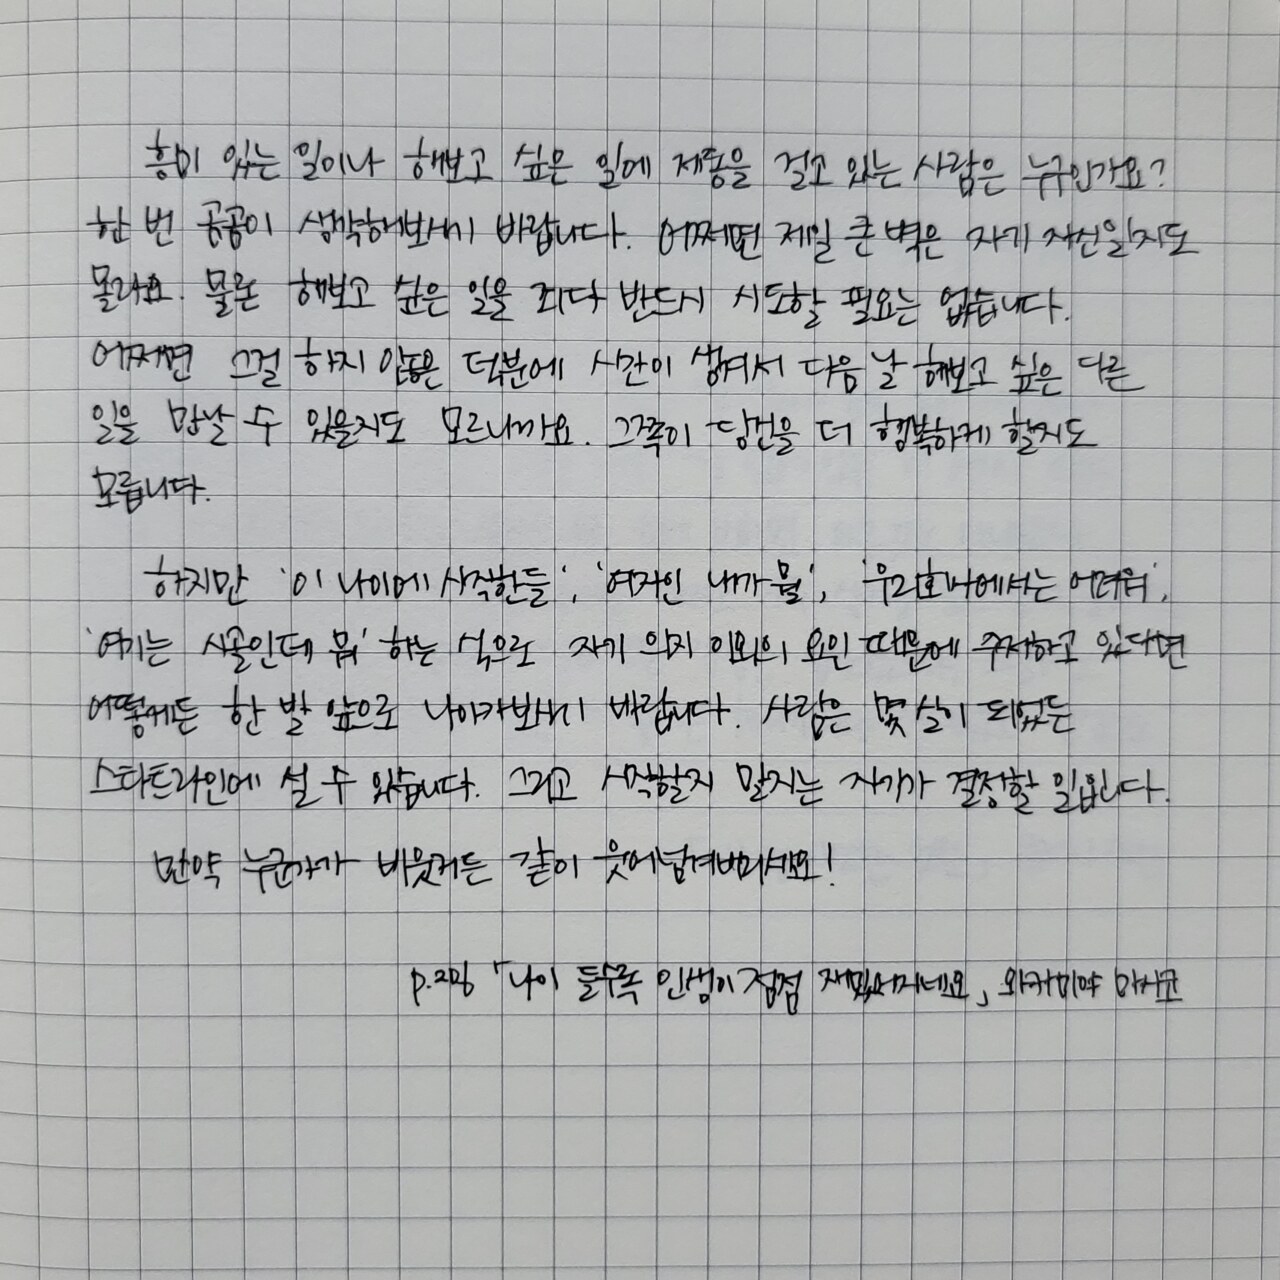 흥미 있는 일이나 해보고 싶은 일에 제동을 걸고 있는 사람은 누구인가요?
한 번 곰곰이 생각해보시기 바랍니다. 어쩌면 제일 큰 벽은 자기 자신일지도
몰라요. 물론 해보고 싶은 일을 죄다 반드시 시도할 필요는 없습니다.
어쩌면 그걸 하지 않은 덕분에 시간이 생겨서 다음 날 해보고 싶은 다른
일을 만날 수 있을지도 모르니까요. 그쪽이 당신을 더 행복하게 할지도
모릅니다.
하지만 '이 나이에 시작한들', '여자인 내가 뭘', '우리 에서는 어려워',
'여기는 시골인데 뭐' 하는 식으로 자기 의지 이외의 요인 때문에 주저하고 있다면
어떻게든 한 발 앞으로 나아가보시기 바랍니다. 사람은 몇 살이 되었든
스타트라인에 설 수 있습니다. 그리고 시작할지 말지는 자기가 결정할 일입니다.
만약 누군가가 비웃거든 같이 웃어넘겨버리세요!
「나이 들수록 인생이 점점 재밌어지네요」 와카미야 마사코